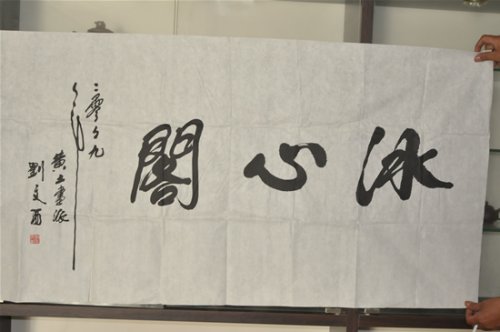 冰心閣
二零零九
年
黄土畫派
劉文西